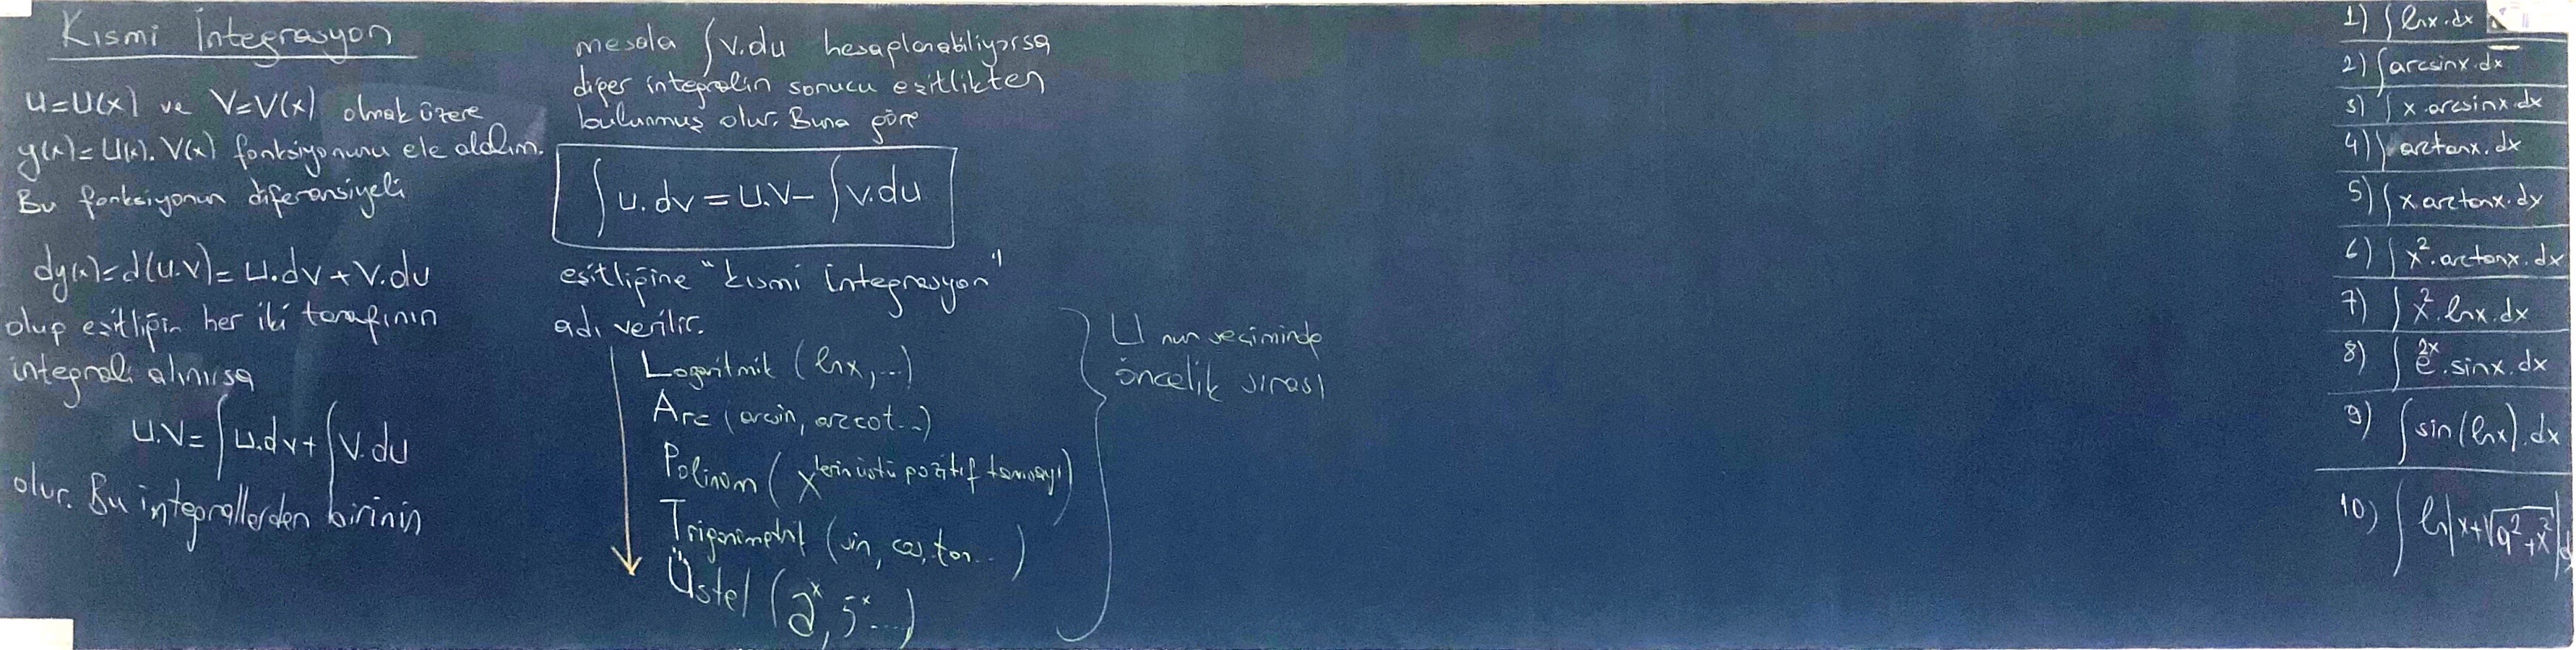 Kısmi İntegrasyon
u=u(x) ve V=V(x) olmak üzere
y(x)=u(x).V(x) fonksiyonunu ele alalım.
Bu fonksiyonun diferansiyeli
dy(x)=d(u.v)=u.dv+v.du
olup eşitliğin her iki tarafının
integrali alınırsa
u.v=∫u.dv+∫v.du
olur. Bu integrallerden birinin
mesela ∫v.du hesaplanabiliyorsa
diğer integralin sonucu eşitlikten
bulunmuş olur. Buna göre
∫u.dv=u.v-∫v.du
eşitliğine "kısmi integrasyon"
adı verilir.
Logaritmik (lnx,...)
Arc (arcsin, arccot...)
Polinom (x'lerin üstü pozitif tamsayı)
Trigonimetrik (sin, cos, tan...)
Üstel (2^x, 5^x...)
U nun seçiminde
öncelik sırası
1) ∫lnx.dx
2) ∫arcsinx.dx
3) ∫x.arcsinx.dx
4) ∫arctanx.dx
5) ∫x.arctanx.dx
6) ∫x².arctanx.dx
7) ∫x².lnx.dx
8) ∫e^2x.sinx.dx
9) ∫sin(lnx).dx
10) ∫ln|x+√a²+x²|d